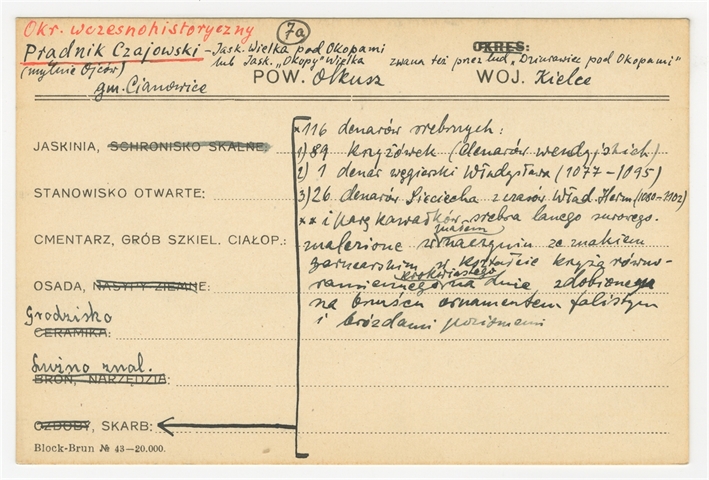 Okr. wczesnohistoryczny 7a
Prądnik Czajowski - Jask. Wielka pod Okopami OKRES:
(mylnie Ojców) lub Jask. „Okopy" Wielka zwana też przez lud „Dziurawiec pod Okopami"
gm. Cianowice POW. Olkusz WOJ. Kielce
JASKINIA, SCHRONISKO SKALNE,
STANOWISKO OTWARTE:
CMENTARZ, GRÓB SZKIEL. CIAŁOP.:
OSADA, NASYPY ZIEMNE:
Grodzisko
CERAMIKA:
Luźno znal.
BROŃ, NARZĘDZIA:
OZDOBY, SKARB:
Block-Brun № 43—20.000.
* 116 denarów srebrnych:
1) 89 krzyżówek (denarów wendyjskich)
2) 1 denar węgierski Władysława (1077-1095)
3) 26 denarów Sieciecha z czasów Wład. Herm (1080-1102)
** i parę kawałków srebra lanego surowego.
znalezione w naczyniu ze znakiem
garncarskim w kształcie krzyża równo-
ramiennego na dnie zdobionego
na brzuścu ornamentem falistym
i bruzdami poziomemi